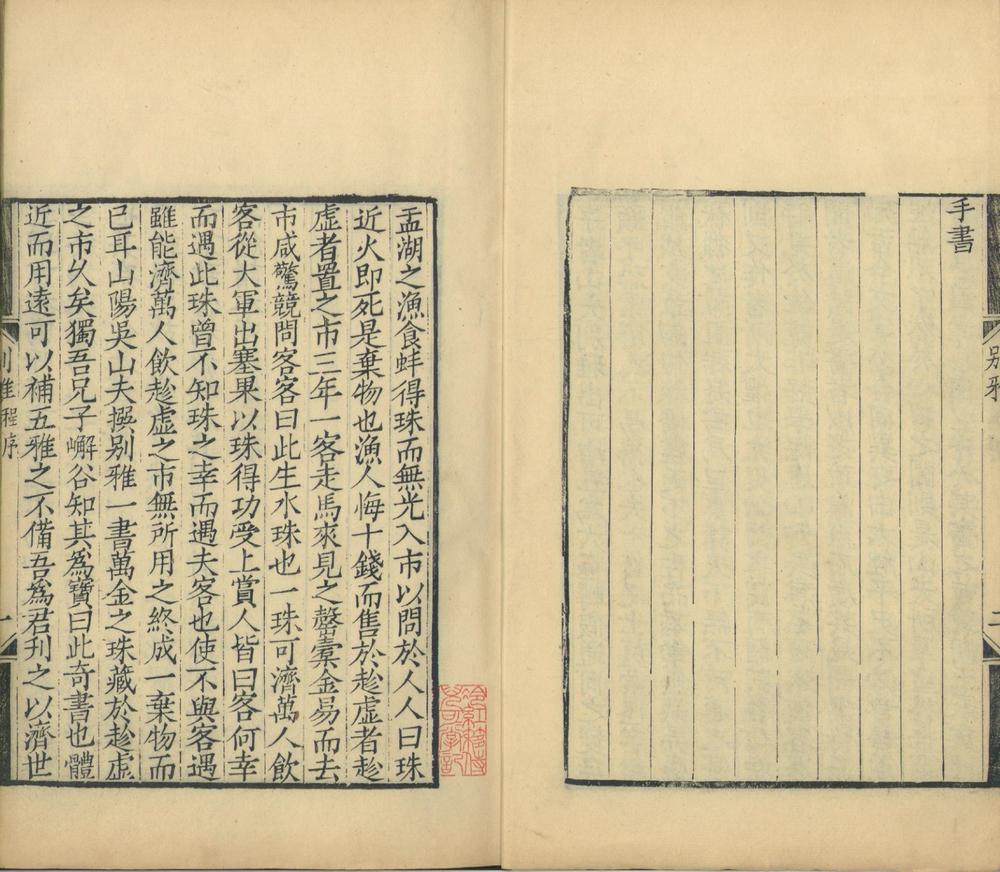 手書
別雅
二
孟湖之漁食蚌得珠而無光入市以問於人人曰珠
近火即死是棄物也漁人悔十錢而售於趁虛者趁
虛者置之市三年一客走馬來見之罄橐金易而去
市咸驚競問客客曰此生水珠也一珠可濟萬人飲
客從大軍出塞果以珠得功受上賞人皆曰客何幸
而遇此珠曾不知珠之幸而遇夫客也使不與客遇
雖能濟萬人飲趁虛之市無所用之終成一棄物而
已耳山陽吳山夫撰别雅一書萬金之珠藏於趁虛
之市久矣獨吾兄子嶰谷知其為寶曰此奇書也體
近而用遠可以補五雅之不備吾為君刋之以濟世
別雅程序
一